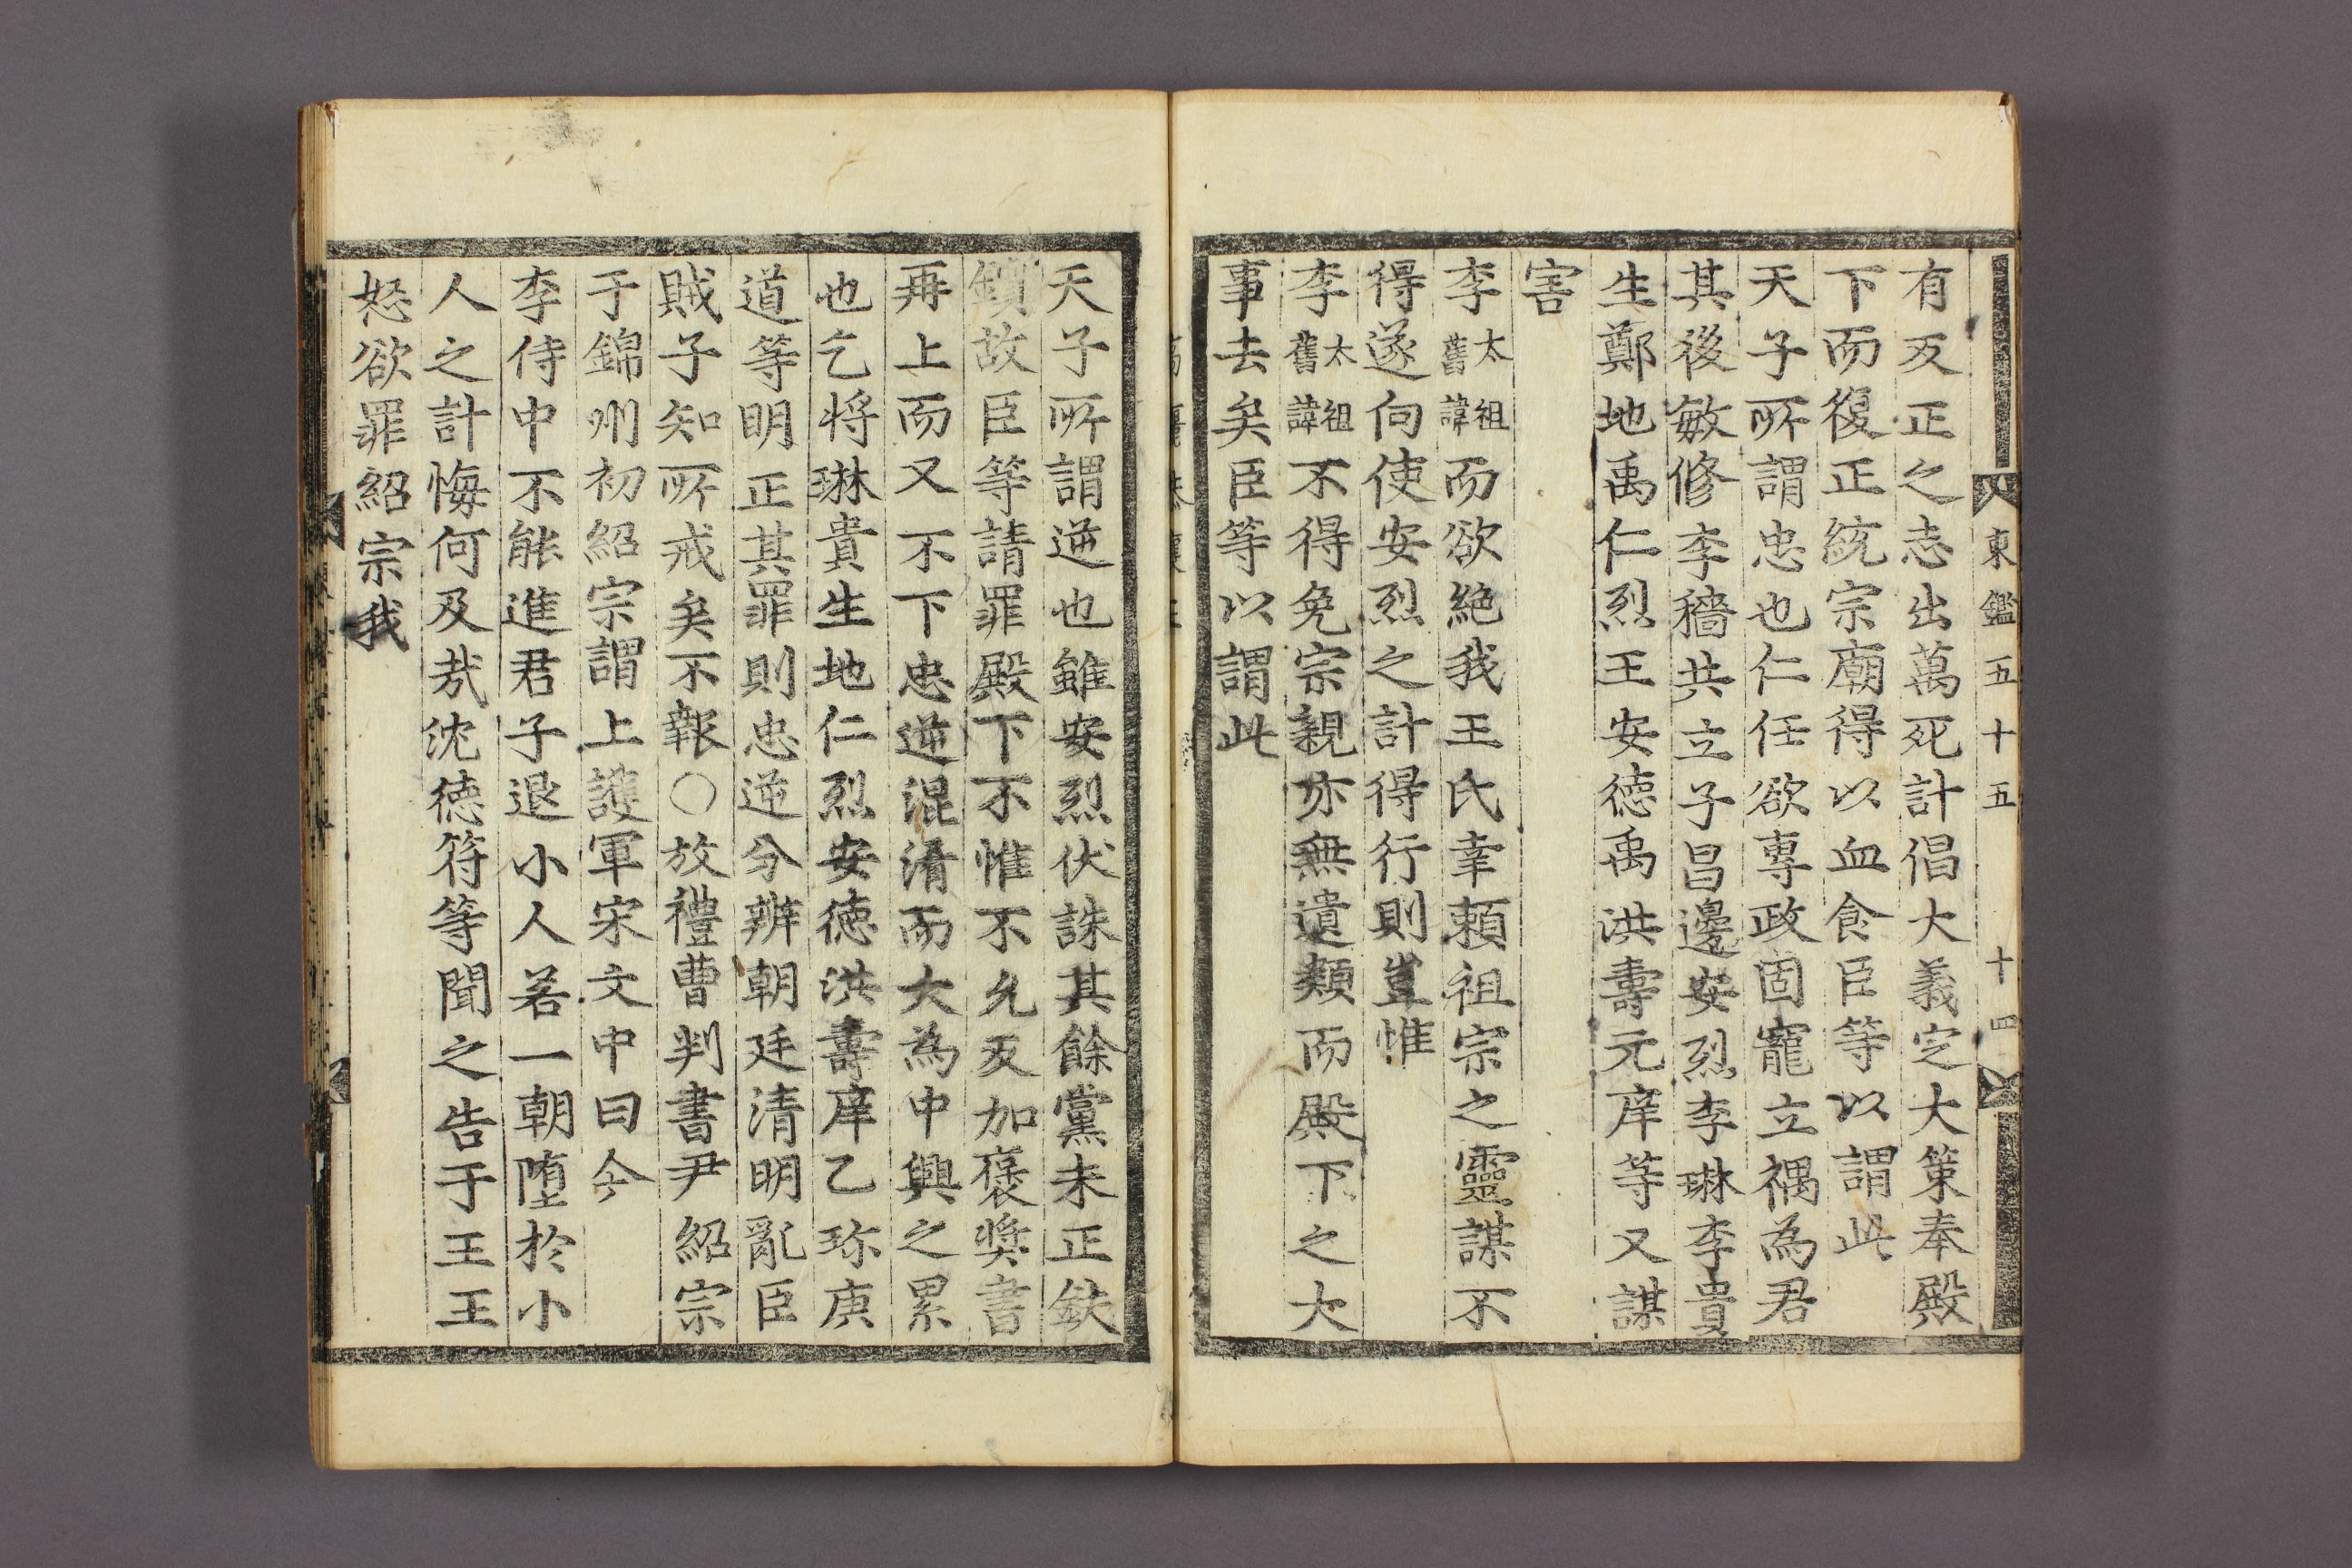 東鑑五十五 十四
有反正之志出萬死計倡大義定大策奉殿
下而復正統宗廟得以血食臣等以謂此
天子所謂忠也仁任欲專政固寵立禑為君
其後敏修李穡共立子昌邊安烈李琳李貴
生鄭地禹仁烈王安德禹洪壽元庠等又謀
害
李太祖舊諱而欲絶我王氏幸頼祖宗之靈謀不
得遂向使安烈之計得行則豈惟
李太祖舊諱不得免宗親亦無遺類而殿下之大
事去矣臣等以謂此
天子所謂逆也雖安烈伏誅其餘黨未正鈇
鑕故臣等請罪殿下不惟不允反加褒奬書
再上而又不下忠逆混淆而大為中興之累
也乞将琳貴生地仁烈安德洪壽庠乙珎庚
道等明正其罪則忠逆分辨朝廷清明亂臣
賊子知所戒矣不報○放禮曹判書尹紹宗
于錦州初紹宗謂上護軍宋文中曰今
李侍中不能進君子退小人若一朝墮於小
人之計悔何及哉沈德符等聞之告于王王
怒欲罪紹宗我